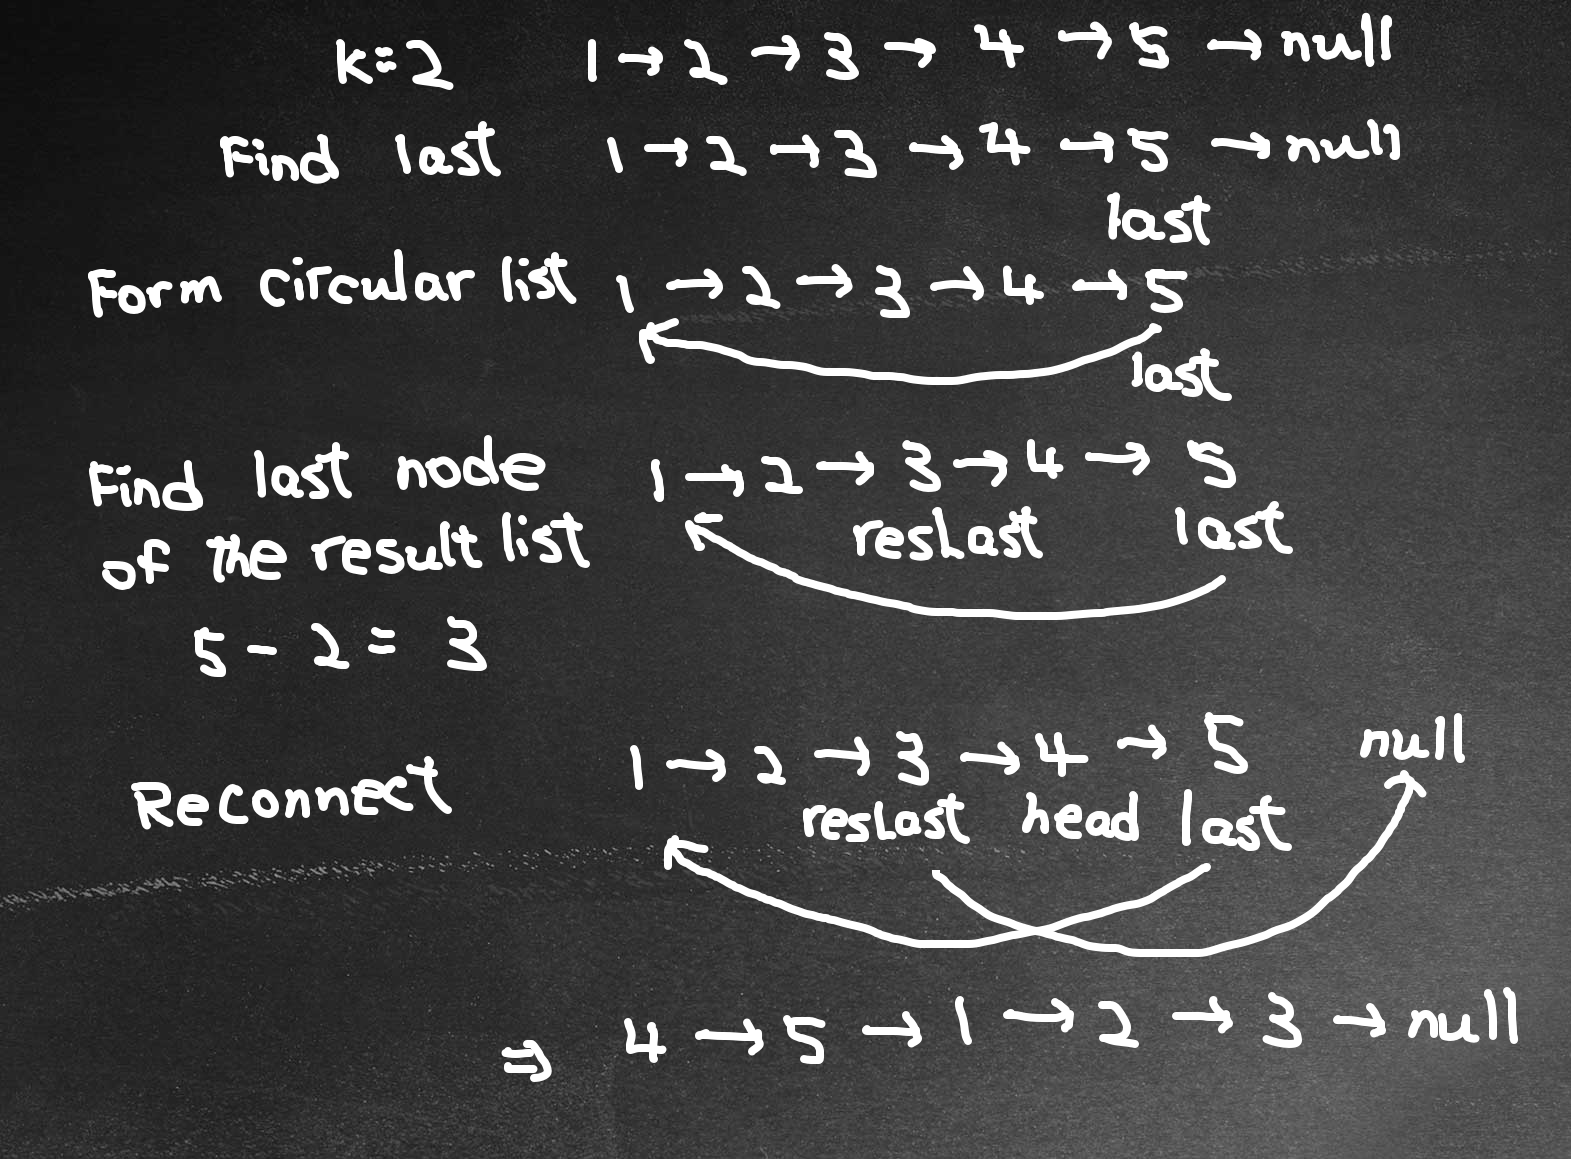 k=2 1 → 2 → 3 → 4 → 5 → null
Find last 1 → 2 → 3 → 4 → 5 → null
last
Form circular list 1 → 2 → 3 → 4 → 5
last
Find last node 1 → 2 → 3 → 4 → 5
of the result list resLast last
5 - 2 = 3
Reconnect 1 → 2 → 3 → 4 → 5 null
resLast head last
⇒ 4 → 5 → 1 → 2 → 3 → null